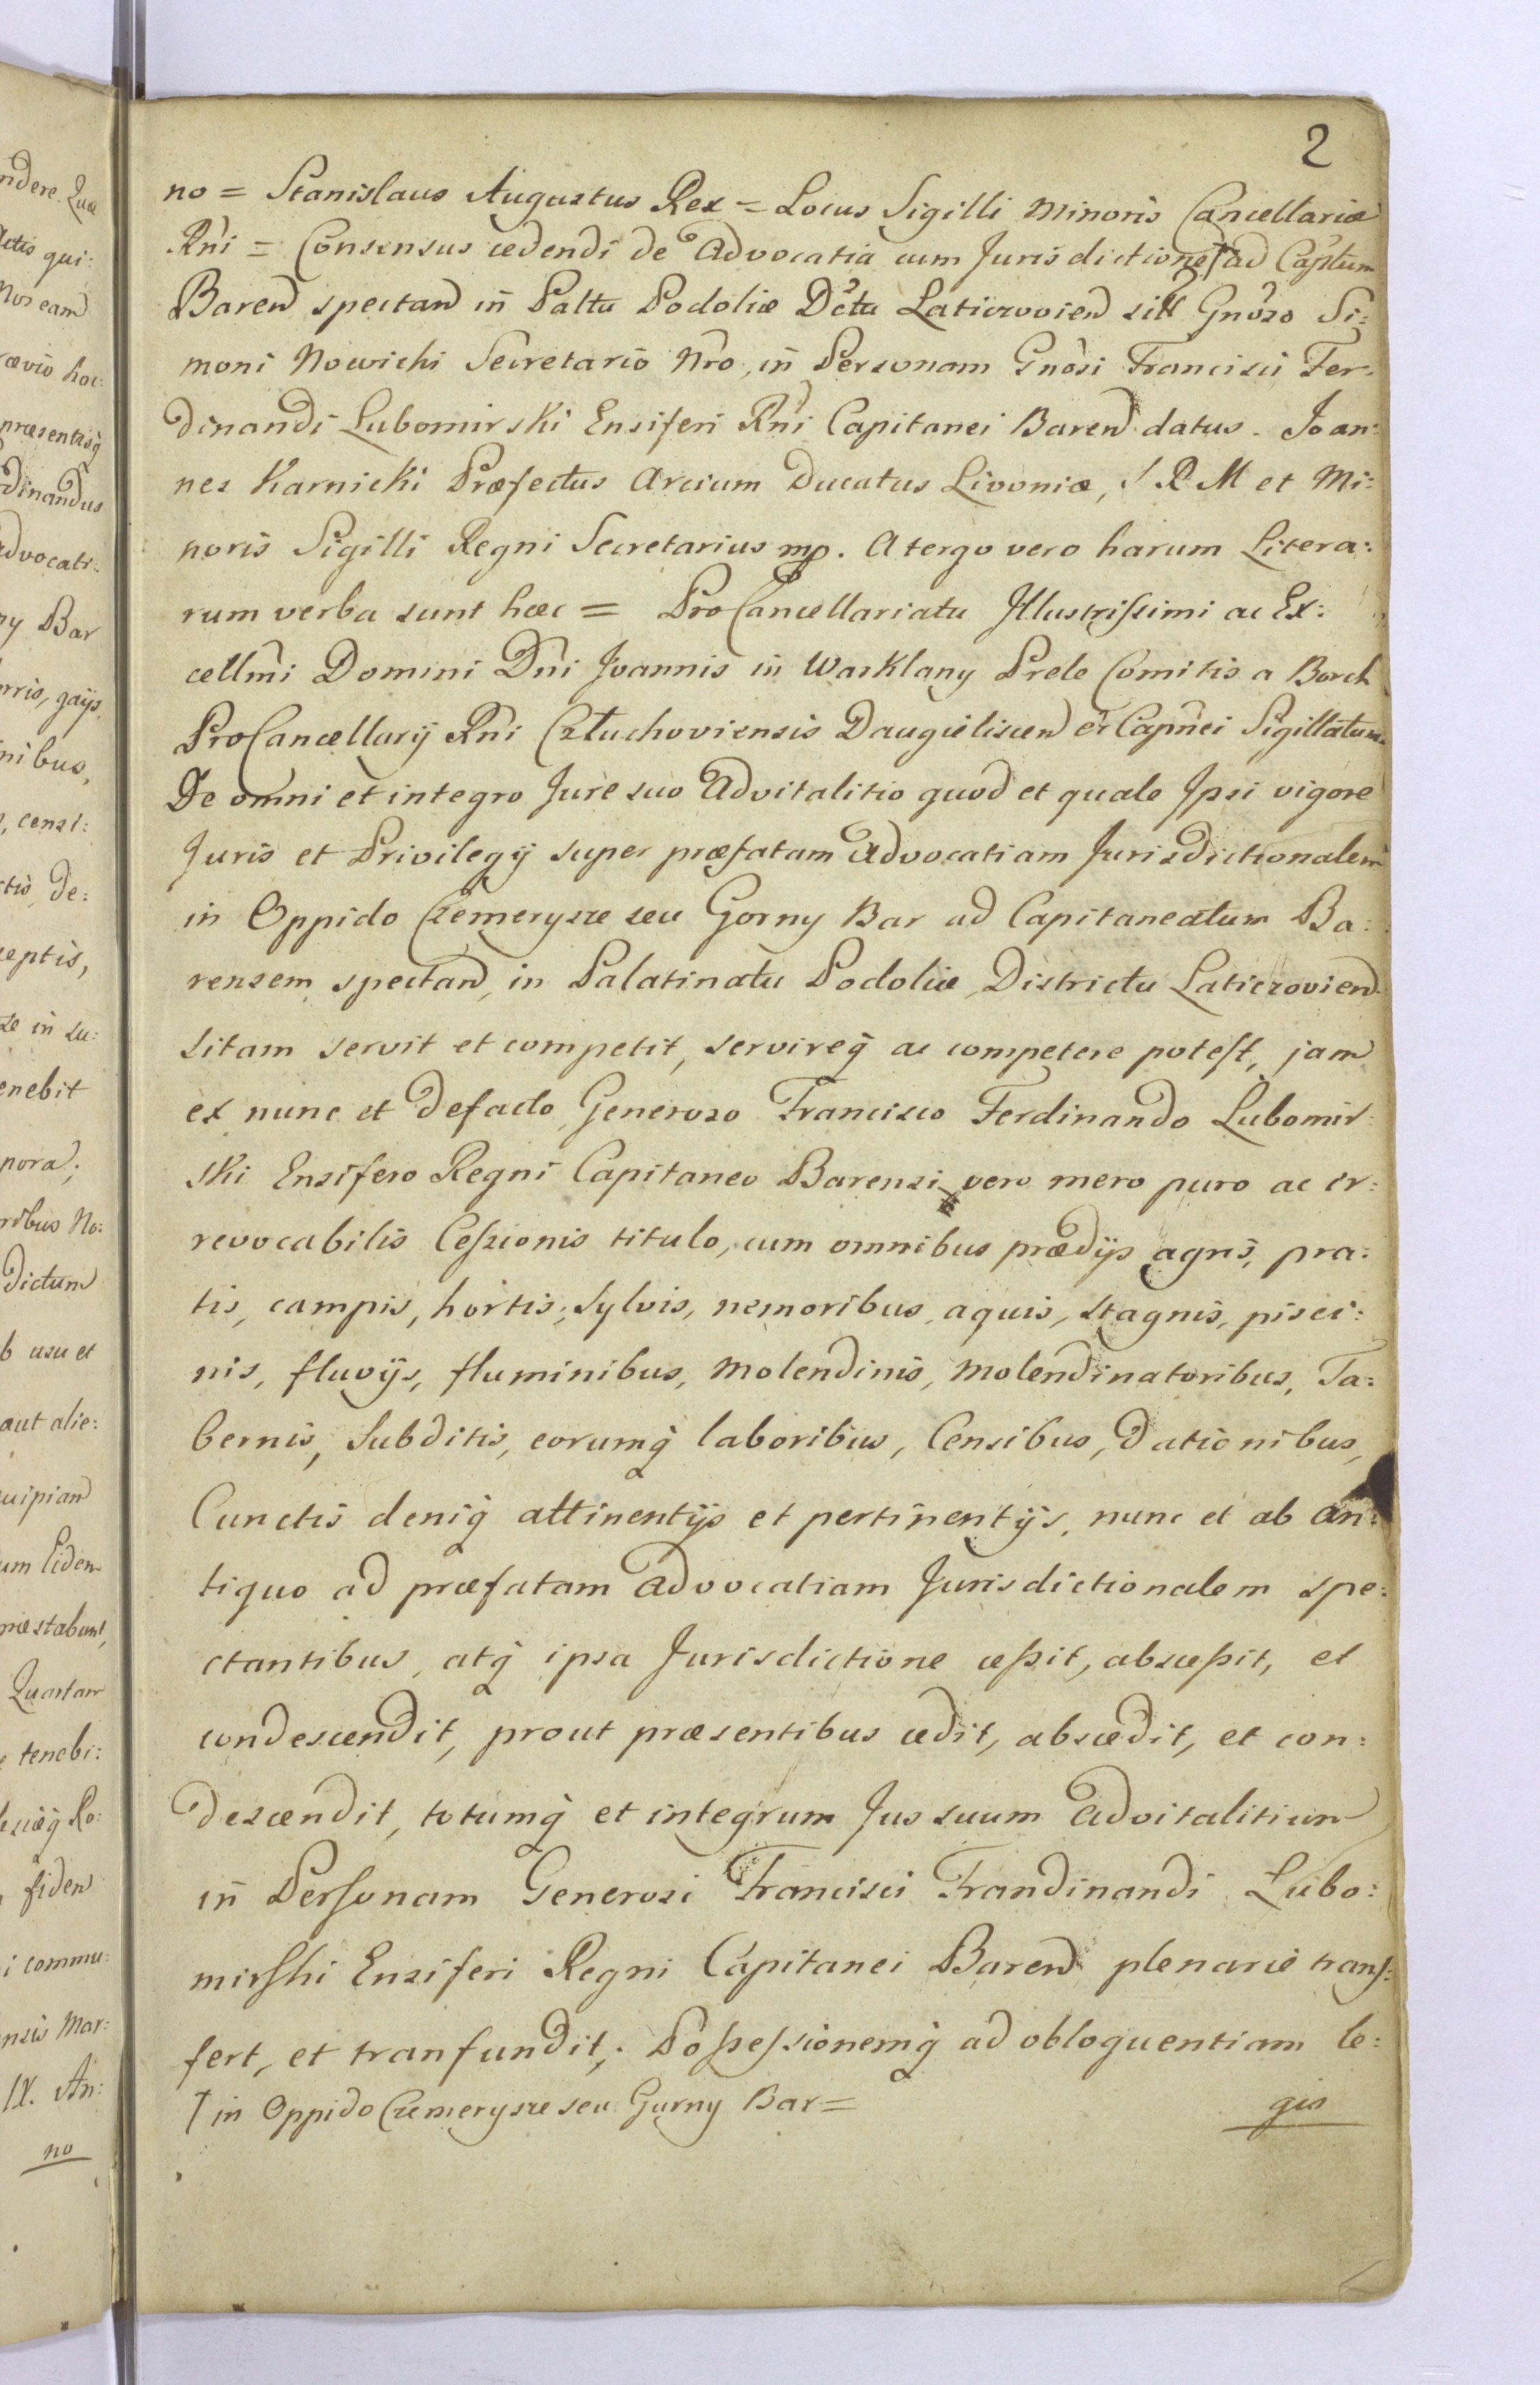 ndere. Quæ
Actis qui:
Nos eam
ævio hoc:
præsentisq̀
dinandus
advocati:
ny Bar
rris, gays,
nibus,
, censi:
ctis, de:
ceptis,
se in su:
enebit
pora;
ribus No:
dictum
b usu et
aut alie:
cuipiam
um Eidem
præstabunt,
Quartam
e tenebi:
fidem
i commu:
ensis Mar:
IX. An:
no
2
no = Stanislaus Augustus Rex = Locus Sigilli Minoris Cancellariæ
Rni = Consensus cedendi de Advocatia cum Jurisdictione † ad Captum
Baren spectan in Paltu Podoliæ Dctu Laticzovien sitt Gnoso Si:
moni Nowicki Secretario Nro, in Personam Gnosi Francisci Fer:
dinandi Lubomirski Ensiferi Rni Capitanei Baren datus. Joan:
nes Karnicki Præfectus Arcium Ducatus Livoniæ, S R M et Mi:
noris Sigilli Regni Secretarius mp. A tergo vero harum Litera:
rum verba sunt hæc = ProCancellariatu Illustrissimi ac Ex:
cellmi Domini Dni Joannis in Warklany Prele Comitis a Borch
ProCancellarij Rni Człuchoviensis Daugieliscen et Capnei Sigillatum.
De omni et integro Jure suo Advitalitio quod et quale Ipsi vigore
Juris et Privilegij super præfatam Advocatiam Jurisdictionalem
in Oppido Czemerysze seu Gorny Bar ad Capitaneatum Ba:
rensem spectan, in Palatinatu Podoliæ Districtu Laticzovien
sitam servit et competit, servireq̀ ac competere potest, jam
ex nunc et defacto Generoso Francisco Ferdinando Lubomir
ski Ensifero Regni Capitaneo Barensi vero mero puro ac ir:
revocabilis Cessionis titulo, cum omnibus prædijs agris, pra:
tis, campis, hortis, sylvis, nemoribus, aquis, stagnis, pisci:
nis, fluvijs, fluminibus, Molendinis, Molendinatoribus, Ta:
bernis, Subditis, eorumq̀ laboribus, Censibus, dationibus,
Cunctis deniq̀ attinentijs et pertinentijs, nunc et ab an:
tiquo ad præfatam Advocatiam Jurisdictionalem spe:
ctantibus, atq̀ ipsa Jurisdictione cessit, abscessit, et
condescendit, prout præsentibus cedit, abscedit, et con:
descendit, totumq̀ et integrum Jus suum Advitalitium
in Personam Generosi Francisci Frandinandi Lubo:
mirski Ensiferi Regni Capitanei Baren plenarie trans:
fert, et tranfundit; Possessionemq̀ ad obloquentiam le:
† in Oppido Czemerysze seu Gurny Bar =
gis